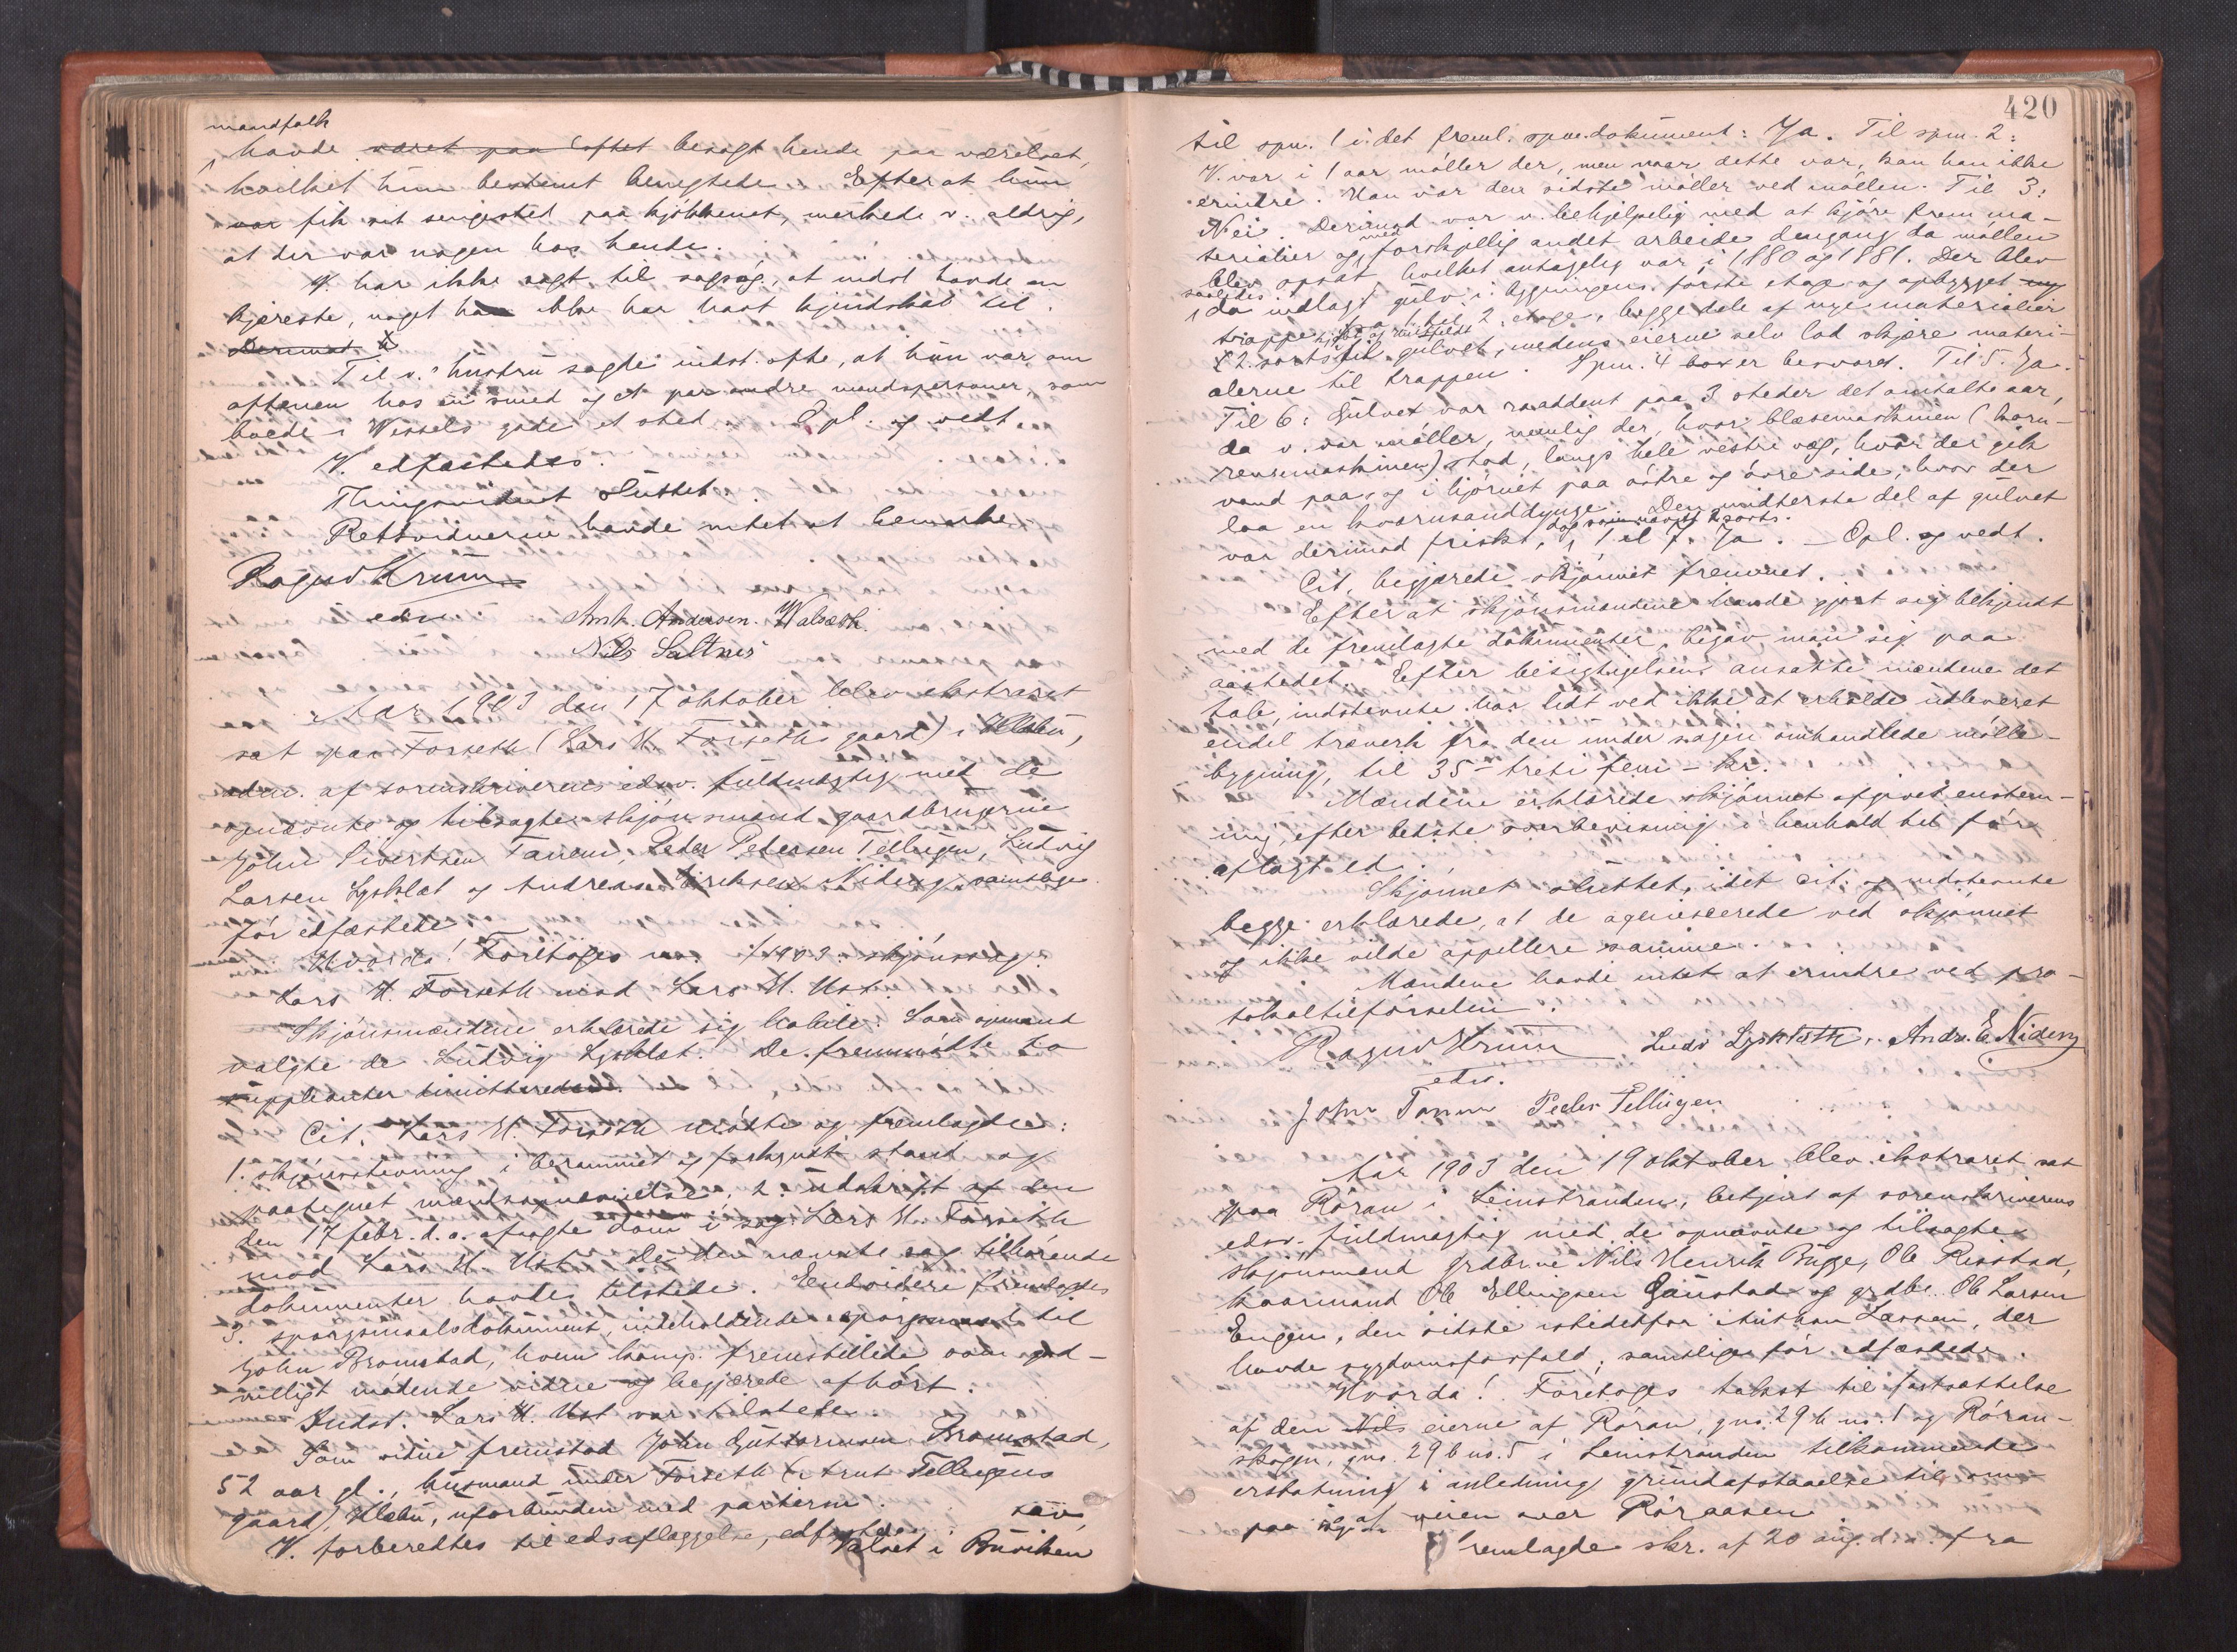 mandfolk
havde været paa loftet besøgt hende paa værelset,
hvilket hun bestemt benegtede. Efter at hun
var fik sit sengested paa kjøkkenet, merkede v. aldrig,
at der var nogen hos hende.
V. har ikke sagt til sagsøg., at indst havde en
kjæreste, noget han ikke har havt kjendskab til.
Derimod
Til v.s hustru sagde indst. ofte, at hun var om
aftenen hos en smed og et par andre mandspersoner, som
boede i Wessels gade et sted. Opl. og vedt.
V. edfæstedes.
Thingsvidnet sluttet.
Retsvidnerne havde intet at bemerke.
Ragnv Krum
edsv Amt. Andersen. Walsæth.
Nils Saltnes
Aar 1903 den 17 oktober blev ekstraret
sat paa Forseth (Lars H. Forseths gaard) i Klæbu,
adm. af sorenskriverens edsv. fuldmægtig med de
opnævnte og tilsagte skjønsmænd gaardbrugerne
John Sivertsen Tanem, Peder Petersen Tellugen, Ludvig
Larsen Lysklæt og Andreas Eriksen Nideng, samtlige
før edfæstede
Hvorda! Foretoges no. /1903. skjønssag:
Lars H. Forseth mod Lars H. Ust.
Skjønsmændene erklærede sig habile. Som opmand
valgte de Ludvig Lysklæt. De fremmødte to
supplianter dimitteredes.
Cit. Lars H. Forseth mødte og fremlagde:
1. skjønsstevning i berammet og forkyndt stand og
paategnet mændsopnævnelse, 2. udskrift af den
den 17 febr. d. a. afsagte dom i sag Lars H. Forseth
mod Lars H. Ust. De den nævnte sag tilhørende
dokumenter havdes tilstede. Endvidere fremlagdes
3. spørgsmaalsdokument, indeholdende spørgsmaal til
John Bromstad, hvem komp. fremstillede som god-
villigt mødende vidne og begjærede afhørt.
Indst. Lars H. Ust var tilstede.
Som vidne fremstod John Guttormsen Bromstad,
52 aar gl., husmand under Forseth (Arnt Tellugens
gaard), Klæbu, uforbunden med parterne.
V. forberedtes til edsaflæggelse, edfæstedes. sav
Valset i Buviken
420
til spm. 1 i det freml. spm.dokument: Ja. Til spm. 2:
V. var i 1 aar møller der, men naar dette var, kan han ikke
erindre. Han var den sidste møller ved møllen. Til 3:
Nei. Derimod var v. behjelpelig med at kjøre frem ma-
terialier og med forskjellig andet arbeide dengang da møllen
blev opsat, hvilket antagelig var i 1880 og 1881. Der blev
saaledes
da indlagt gulv i bygningens første etage og opbygget ny
trappe til 2. etage, begge dele af nye materialier
2. sorts til gulvet, medens eierne selv lod skjære materi-
alerne til trappen. Spm. 4 er besvaret. Til 5. Ja.
Til 6: Gulvet var raaddent paa 3 steder det omtalte aar,
da v. var møller, nemlig der, hvor blæsemaskinen (korn-
rensemaskinen) stod, langs hele vestre væg, hvor der gik
vand paa, og i hjørnet paa østre og øvre side, hvor der
laa en kværnsanddynge. Den midterste del af gulvet
dog som nævnt 2 sorts.
var derimod friskt, Til 7. Ja. – Opl. og vedt.
Cit. begjærede skjønnet fremmet.
Efter at skjønsmændene havde gjort sig bekjendt
med de fremlagte dokumenter, begav man sig paa
aastedet. Efter besigtigelsen ansatte mændene det
tab, indstevnte har lidt ved ikke at erholde udleveret
endel træverk fra den under sagen omhandlede mølle-
bygning, til 35 – treti fem – kr.
Mændene erklærede skjønnet afgivet enstem-
mig, efter bedste overbevisning i henhold til før
aflagt ed.
Skjønnet sluttet, idet cit. og indstevnte
begge erklærede, at de acquiescerede ved skjønnet
og ikke vilde appellere samme.
Mændene havde intet at erindre ved pro-
tokoltilførselen.
Ragnv Krum Ludv Lysklætt. Andr. E Nideng
edsv.
John Tanem Peder Tellugen
Aar 1903 den 19 oktober blev ekstraret sat
paa Røran i Leinstranden, betjent af sorenskriverens
edsv. fuldmægtig med de opnævnte og tilsagte
skjønsmænd grdbrne Nils Henrik Bugge, Ole Risstad,
kaarmand Ole Ellingsen Gaustad og grdbr. Ole Larsen
Engen, den sidste istedetfor Larsen, der
havde sygdomsforfald; samtlige før edfæstede.
Hvorda! Foretoges takst til fastsættelse
af den Nils eierne af Røran, gno. 29 b. no. 1 og Røran-
skogen, gno. 29 b no. 5 i Leinstranden tilkommende
erstatning i anledning grundafstaaelse til om-
paa af veien over Røraasen
Fremlagde skr. af 20 aug. d. a. fra